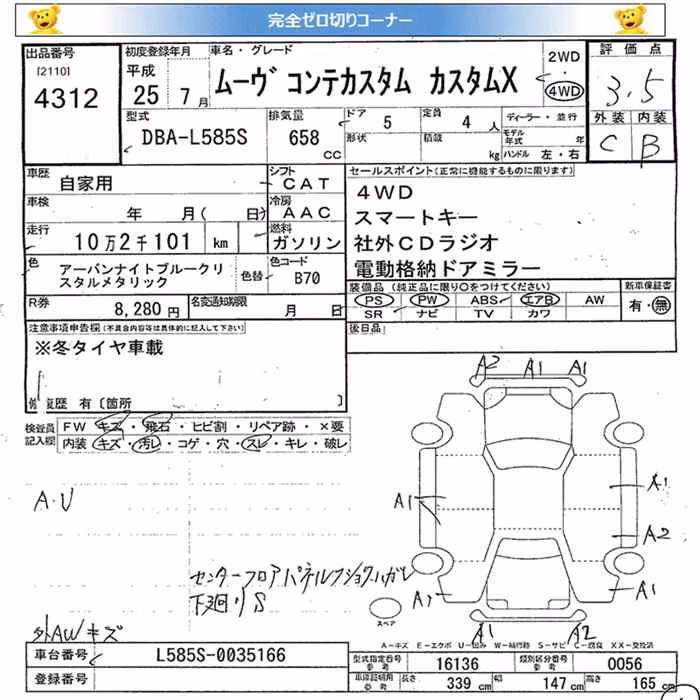 完全ゼロ切りコーナー
出品番号
[2110]
4312
初度登録年月
平成
25 7月
車名・グレード
ムーヴ コンテカスタム カスタムX
2WD
4WD
評価点
3.5
外装 内装
C B
型式
DBA-L585S
排気量
658
CC
ドア 5
形状
定員 4 人
積載 kg
ディーラー・並行
モデル年式 年
ハンドル 左・右
車歴
自家用
シフト
CAT
車検
年 月( 日)
冷房
AAC
走行
10万2千101 km
燃料
ガソリン
色
アーバンナイトブルークリスタルメタリック
色替
色コード
B70
R券
8,280円
名変通知期限
月 日
セールスポイント(正常に機能するものに限ります)
4WD
スマートキー
社外CDラジオ
電動格納ドアミラー
装備品(純正品に限り○をつけてください)
PS PW ABS エアB AW
SR ナビ TV カワ
新車保証書
有・無
後日品
注意事項申告欄(不具合内容等は具体的に記入して下さい)
※冬タイヤ車載
修復歴 有〔箇所 〕
検査員記入欄
FW キズ・飛石・ヒビ割・リペア跡・×要
内装 キズ・汚レ・コゲ・穴・スレ・キレ・破レ
A2 A1 A1
A.U
A1
A1
A2
センターフロアパネルフショクハガレ
下廻りS
A1
A1
A1 A2
スペア
外AWキズ
A=キズ E=エクボ U=凹み W=補修跡 S=サビ C=腐食 XX=交換済
車台番号
L585S-0035166
登録番号
型式指定番号
参考
16136
類別区分番号
参考
0056
車庫証明用
参考
長さ
339 cm
幅
147 cm
高さ
165 cm